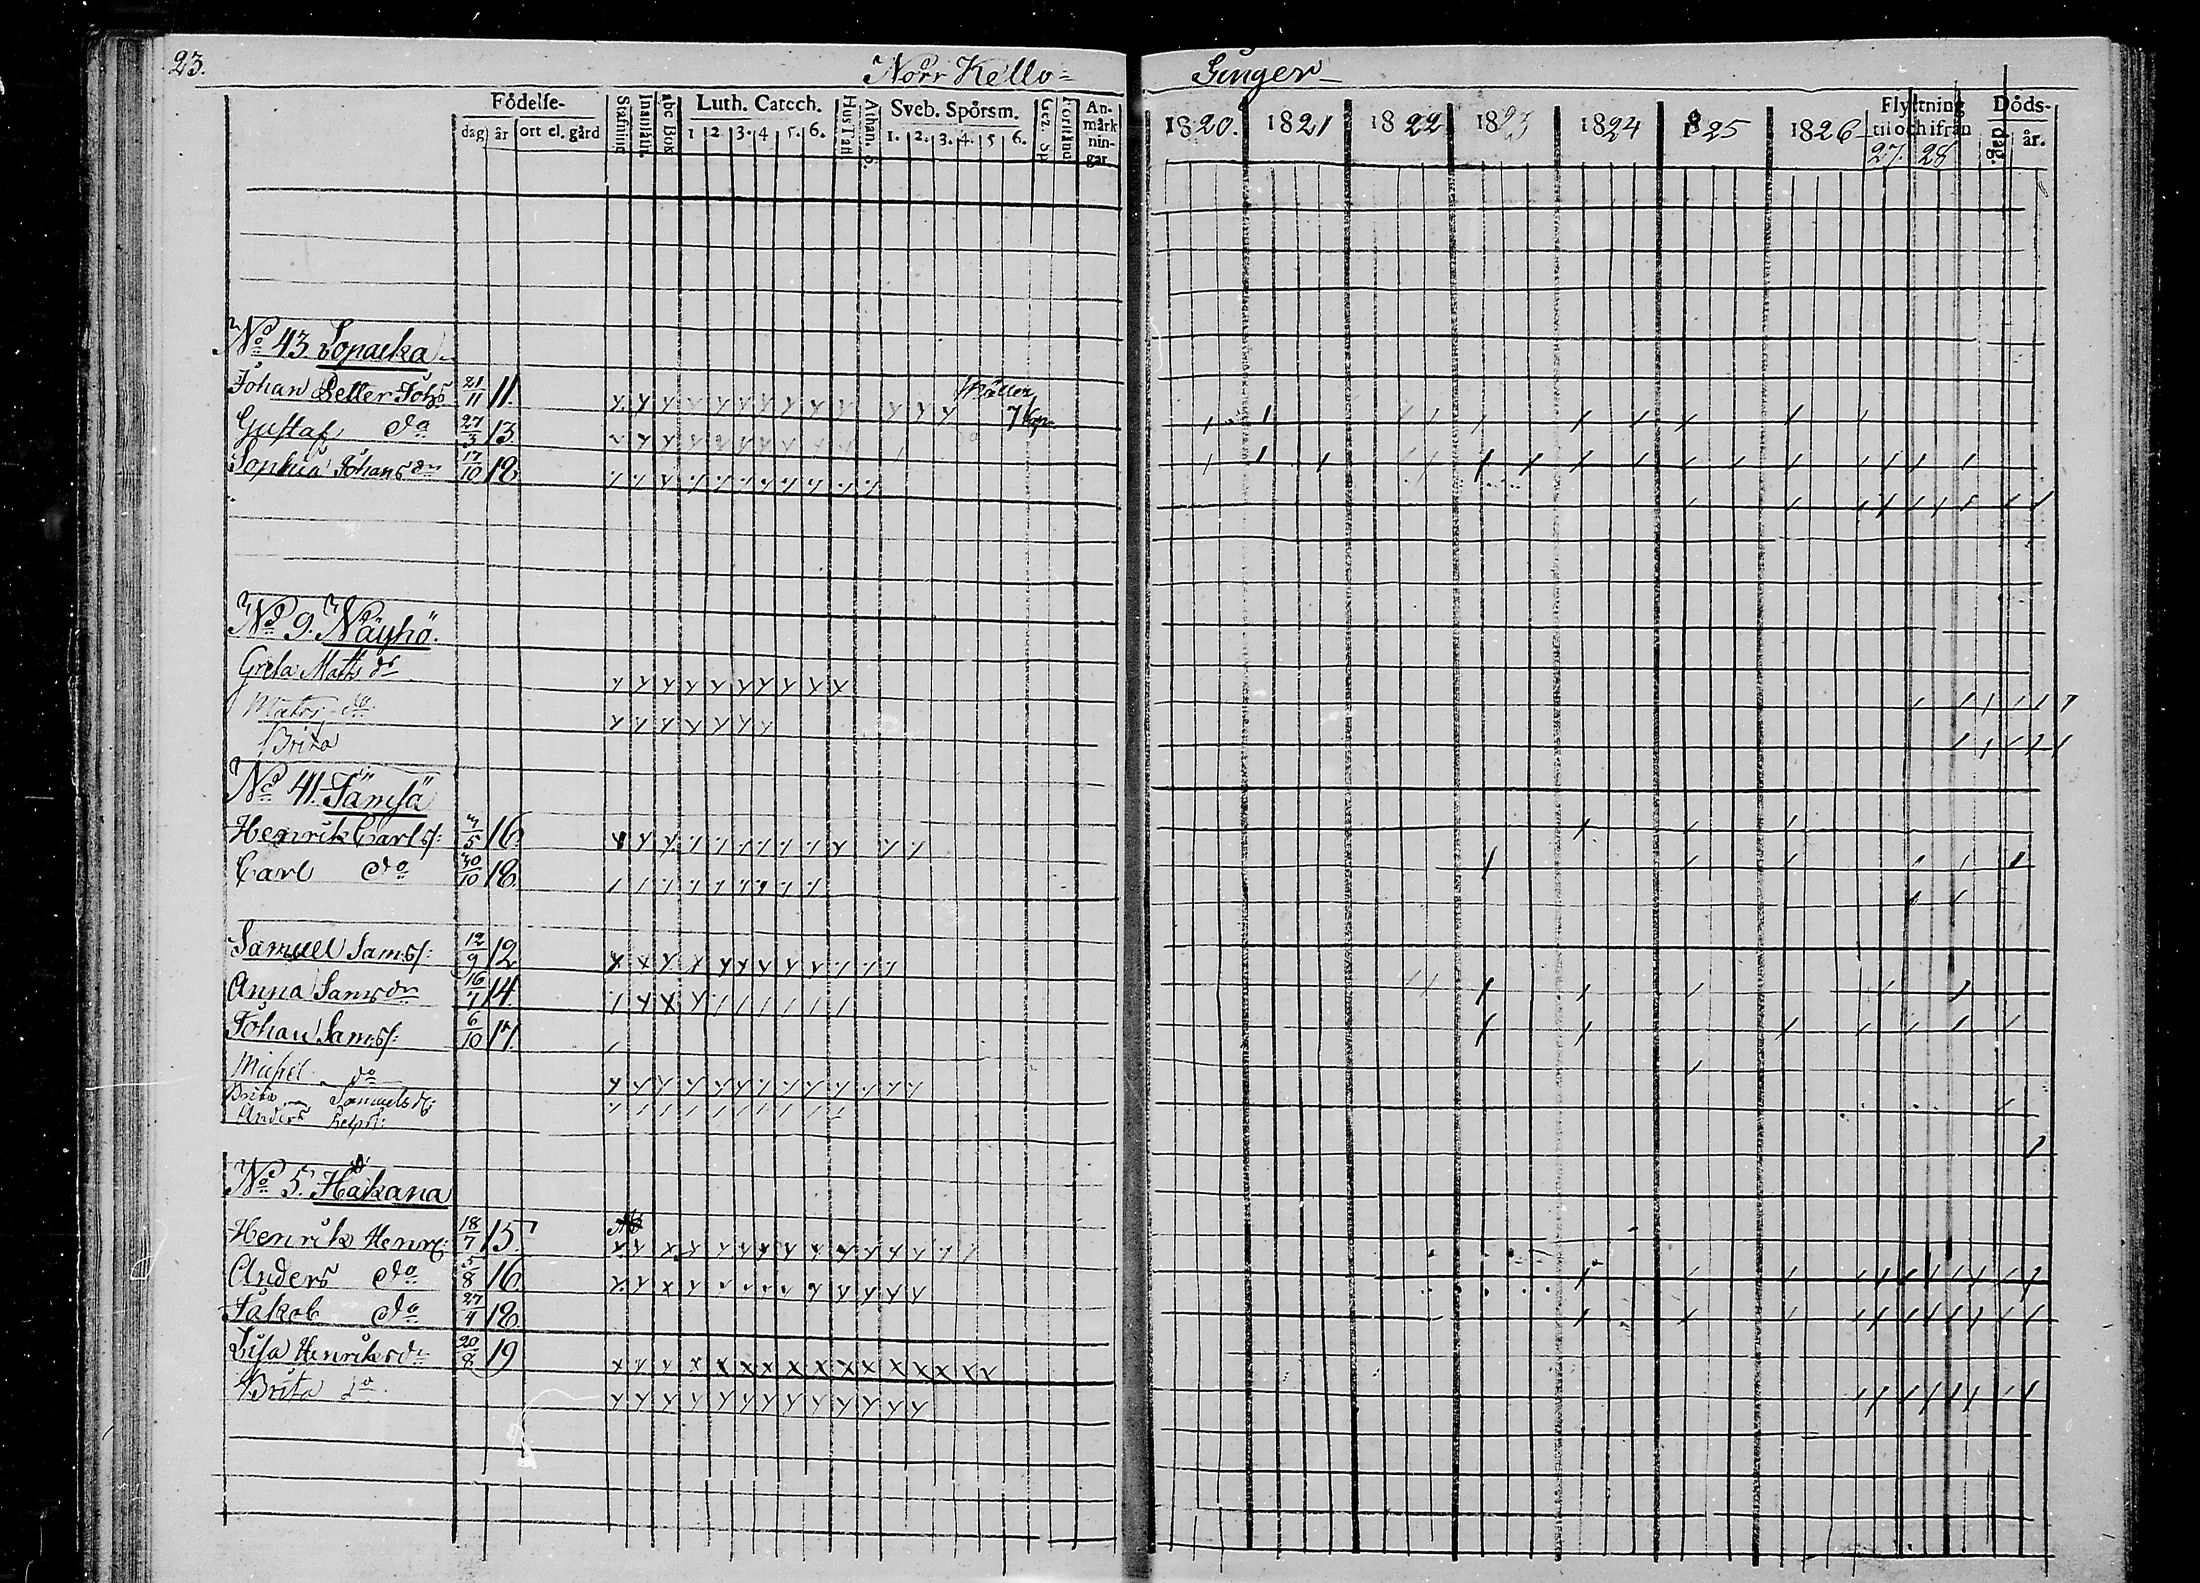 23.
Norr Kello= Ginger
Födelse-
dag år ort el. gård
Stafning
Innanläsn.
abc Bok
Luth. Catech.
1 2. 3. 4 5. 6.
Hus Tafl
Athan. S.
Sveb. Spörsm.
1. 2. 3. 4. 5 6.
Gez. Sp.
Förstånd
An-
märk
nin-
gar.
1820. 1821 1822 1823 1824 1825 1826
Flyttning
til och ifrån
27. 28
Döds-
dag. år.
No 43. Sopacka
Johan Petter Johs 21/11 11.
7 kap
Gustaf do 27/3 13.
Sophia Johansdr 17/10 18.
No 9. Näyhö.
Greta Matts dr
Brita
No 41. Jämsä
Henrik Carls: 7/5 16.
Carl do 30/10 18.
Samuel Sams: 12/9 12
Anna Samsdr 16/7 14.
Johan Sams: 6/10 17.
Michel do
Brita Samuels dr:
Anders
No 5. Håkana
Henrik Henrs: 18/7 15.
Anders do 5/8 16.
Jakob do 27/4 18.
Lisa Henriksdr 20/8 19
Brita do.